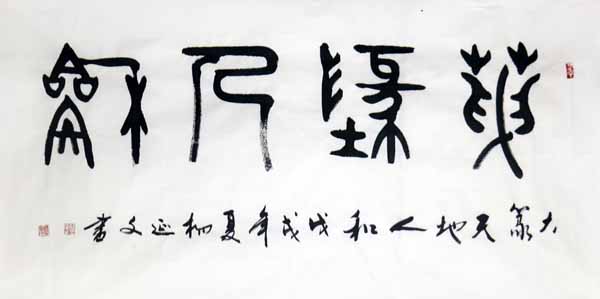 天墬人龢
大篆天地人和戊戌年夏柳延文書